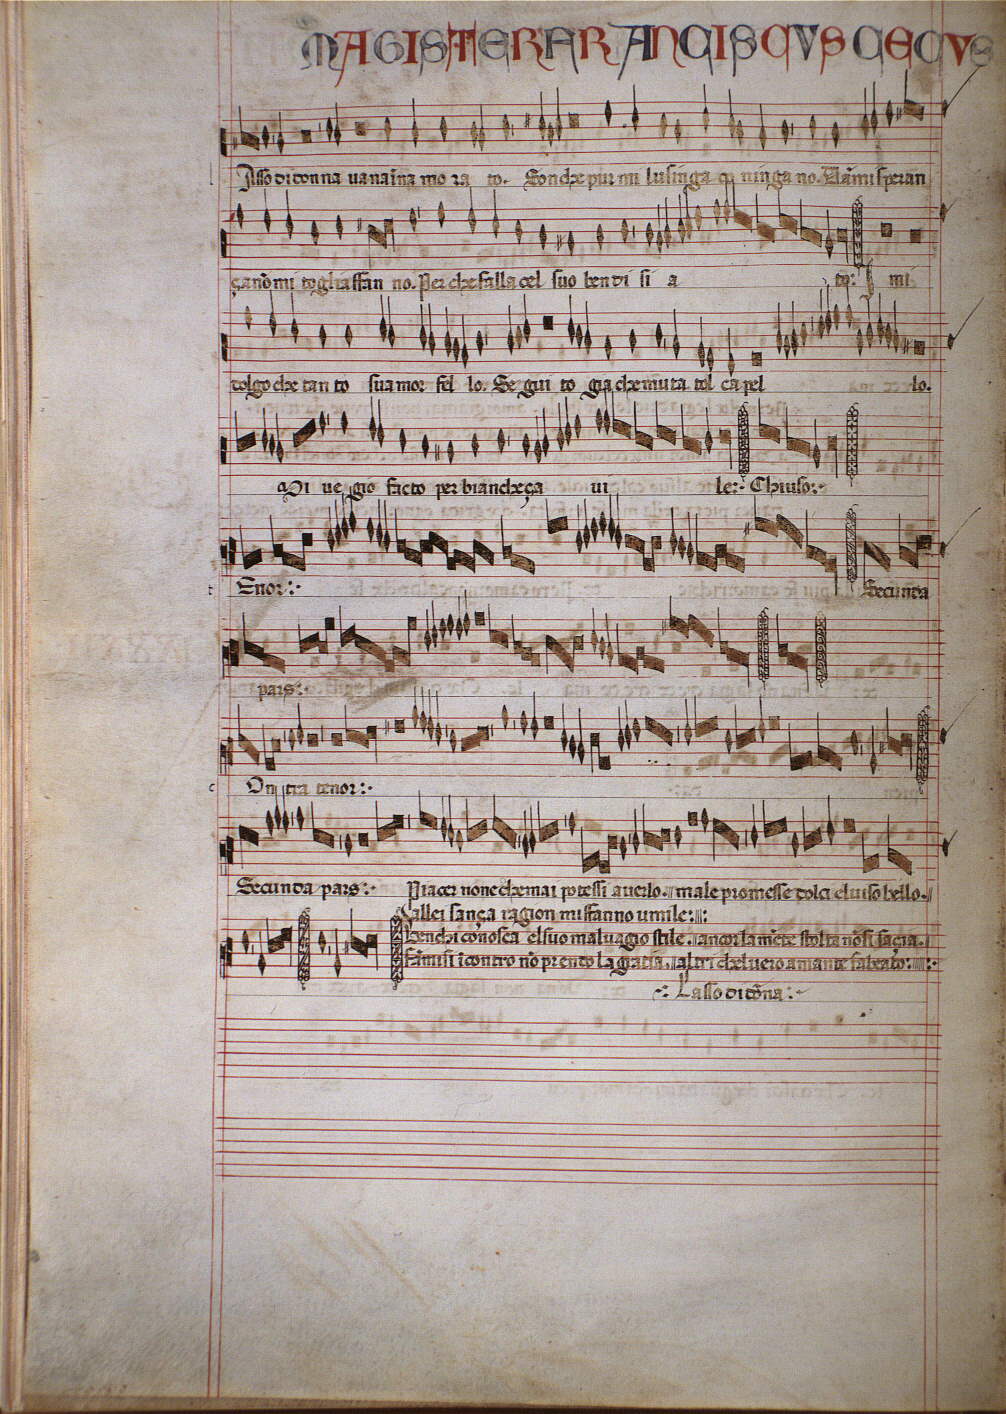 MAGISTER FRANCISCVS CECVS
Asso di donna vana ina mo ra to. Son che pur mi lusinga ninga no. Dami speran
çanõ mi toglia ffan no. Per che falla cel suo ben di si a to: I mi
tolgo che tan to sua mor fel lo. Se gui to gia che muta tol ca pel lo.
Di ve gio facto per biancheça vi le: Chiuso:
t Enor: Secunda
pars:
c On tra tenor:
Secunda pars: Piacer none che mai potessi averlo. male promesse dolci el viso bello.
Fallei sança ragion mi ffanno umile:
benchi conosca el suo malvagio stile. ancor la mẽte stolta nõ si sacia.
Fãmisi ĩcontro nõ prendo la gratia. altri chel vero amante fa beato:
Lasso di dõna: